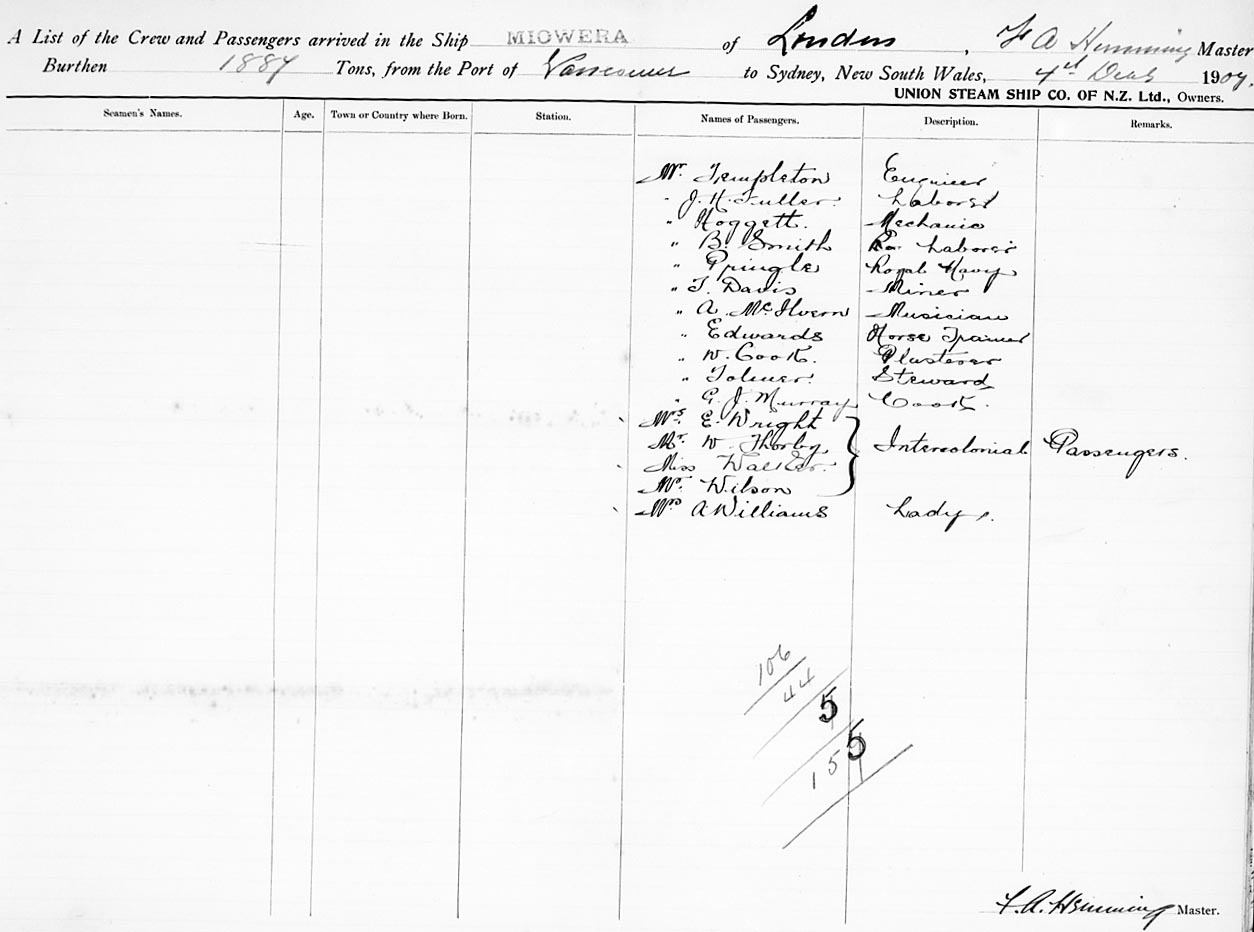 A List of the Crew and Passengers arrived in the Ship MIOWERA of London, F A Hemming Master
Burthen 1887 Tons, from the Port of Vancouver to Sydney, New South Wales, 4th Decb 1907.
UNION STEAM SHIP CO. OF N.Z. Ltd., Owners.
Seamen's Names. Age. Town or Country where Born. Station. Names of Passengers. Description. Remarks.
Mr. Templeton Engineer
" J. H. Fuller. Laborer
" Hoggett. Mechanic
" B. Smith Laborer
" Pringle Royal Navy
" T. Davis Miner
" A. McIlvern Musician
" Edwards Horse Trainer
" W. Cook. Plasterer
" Steward
" G. J. Murray Cook.
Mrs. E. Wright
Mr. W. Thorby Intercolonial Passengers.
Miss Walker.
Mr. Wilson
Mrs A Williams Lady.
106
44
5
155
F. A. Hemming Master.